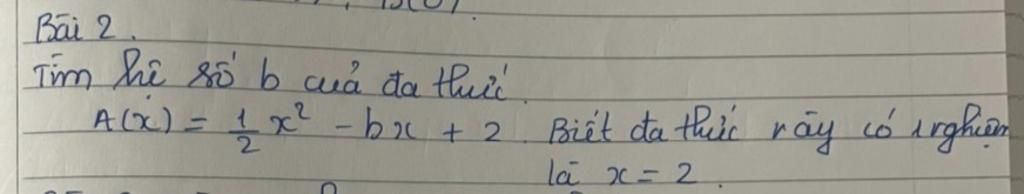 Bài 2.
Tìm hệ số b của đa thức
A(x) = 1/2 x² - bx + 2. Biết đa thức này có 1 nghiệm
là x = 2.